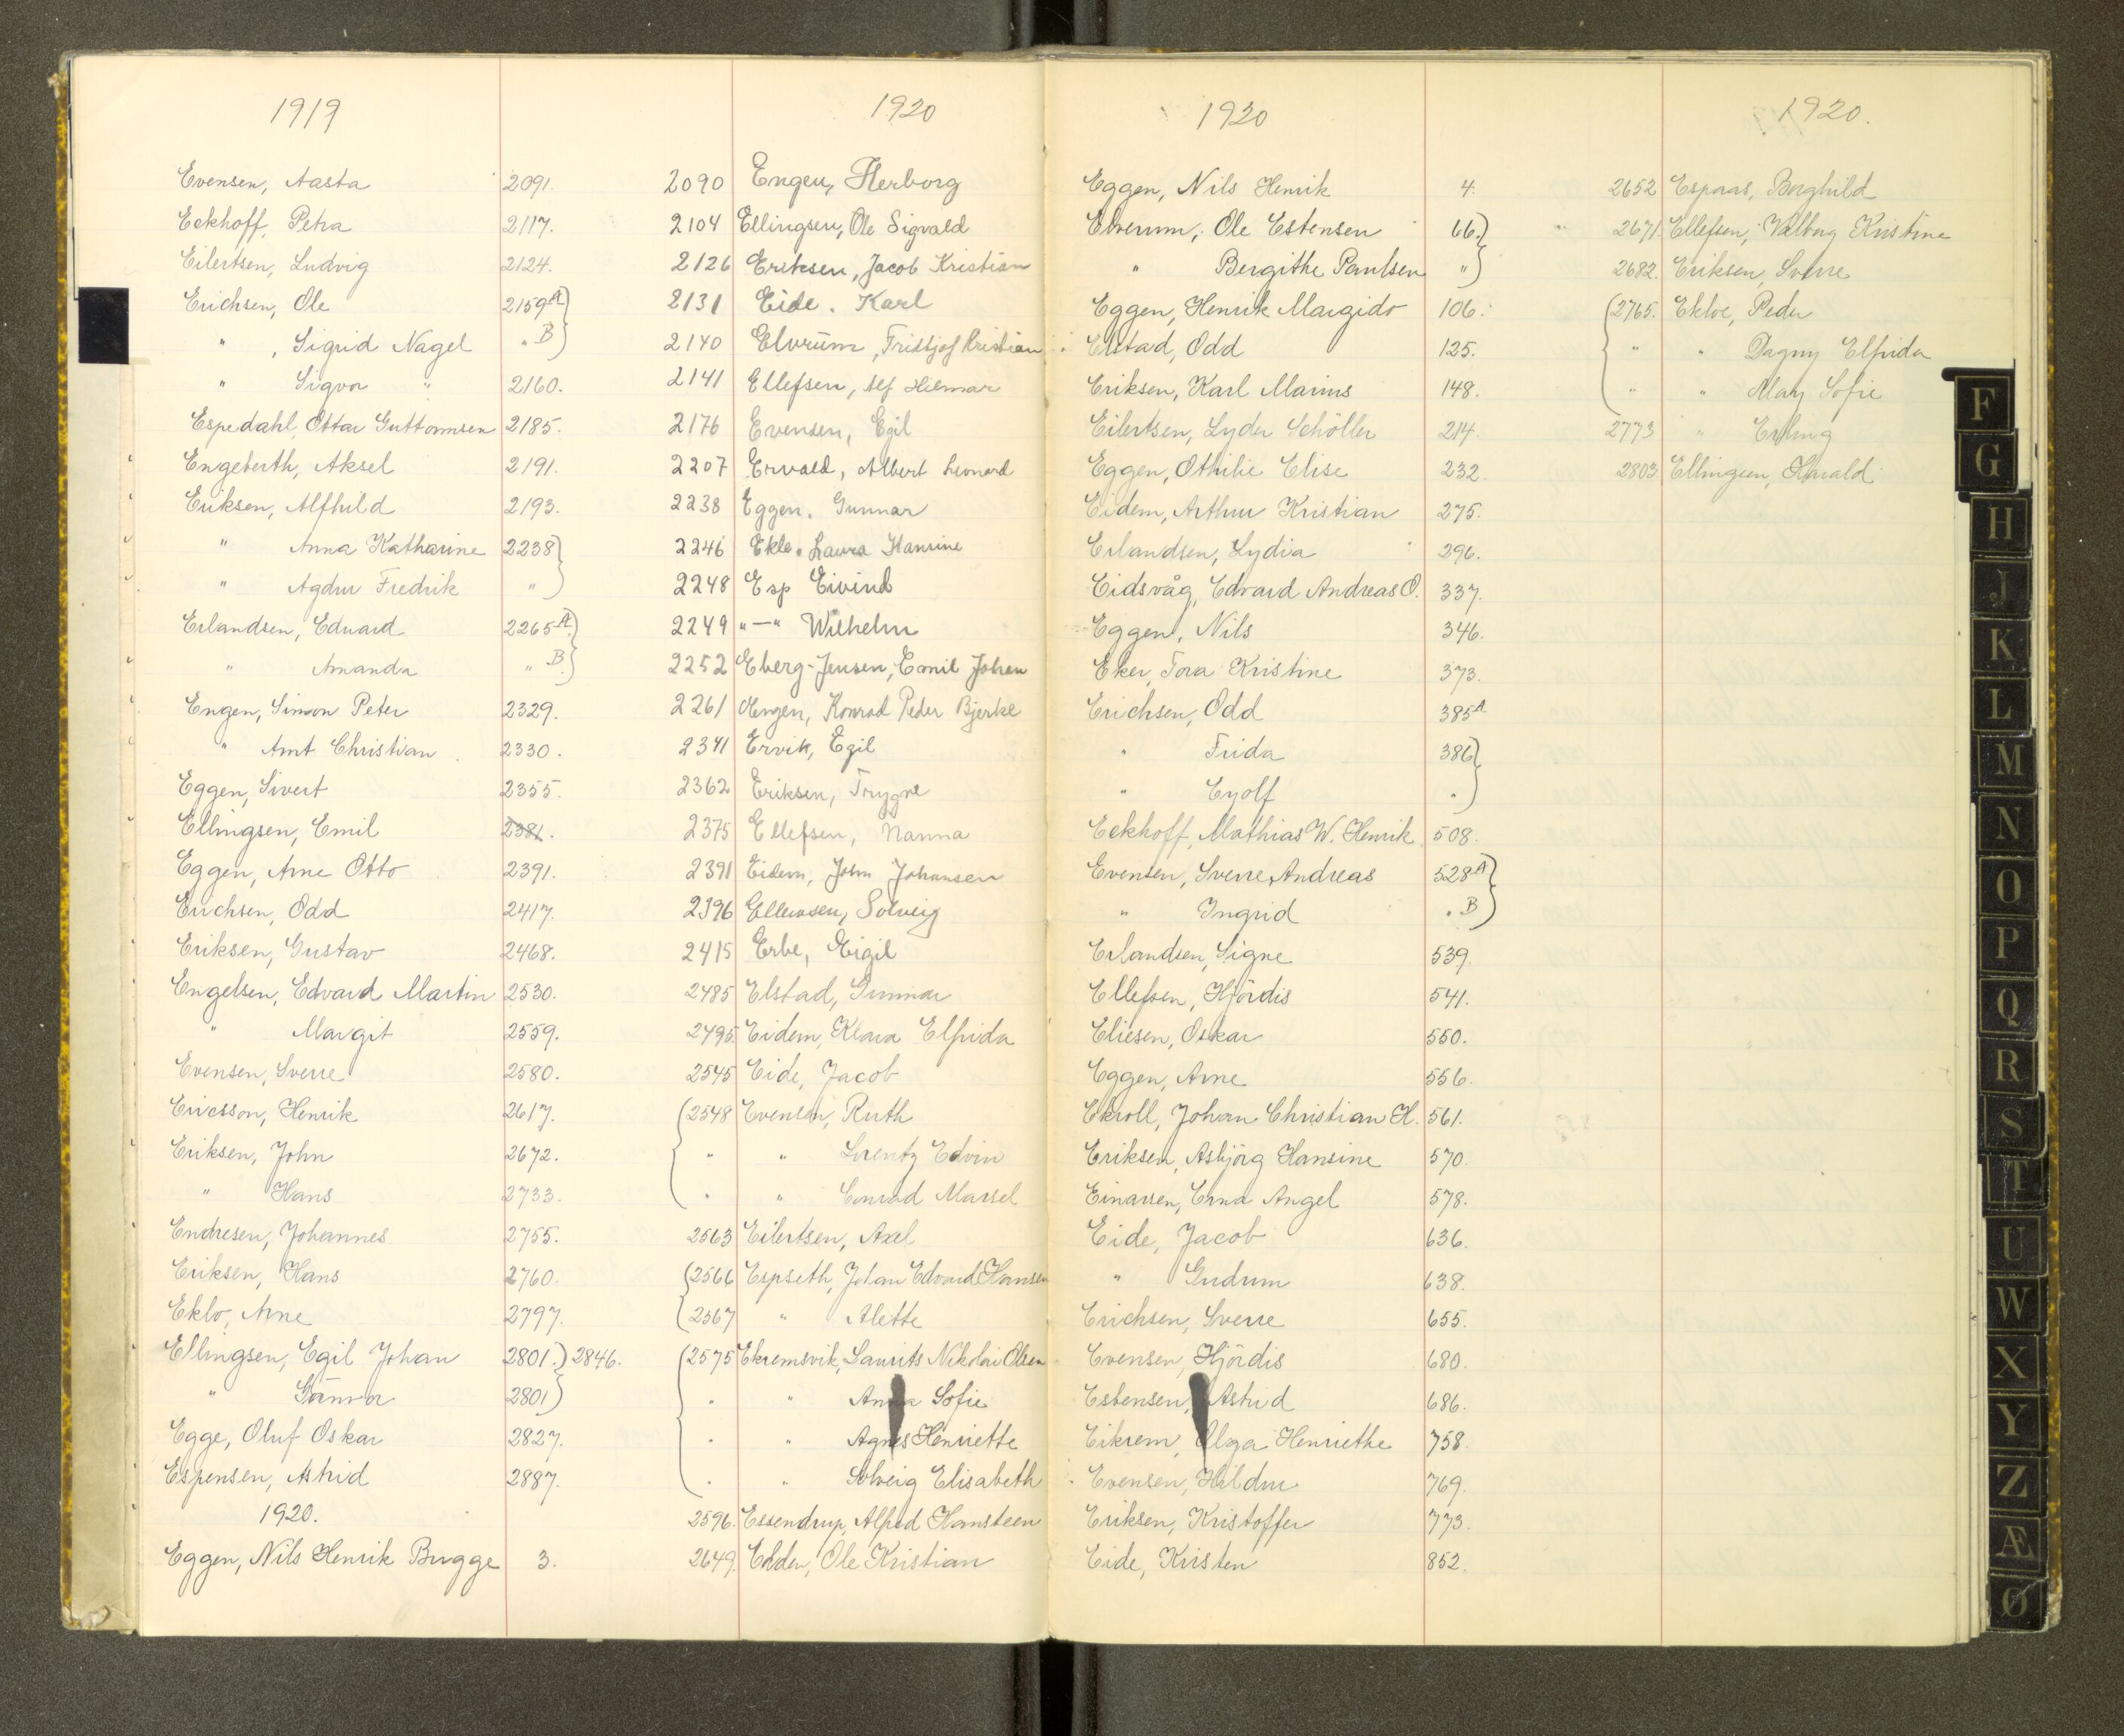 1919
Evensen, Aasta 2091.
Eckhoff, Petra 2117.
Eilertsen, Ludvig 2124.
Erichsen, Ole 2159 A)
" , Sigrid Nagel " B)
" Sigvor " 2160.
Espedahl, Ottar Guttormsen 2185.
Engebreth, Aksel 2191.
Eriksen, Alfhild 2193.
" Anna Katharine 2238)
" Agdur Fredrik " )
Erlandsen, Edvard 2265 A)
" Amanda " B)
Engen, Simon Peter 2329.
" Arnt Christian 2330.
Eggen, Sivert 2355.
Ellingsen, Emil 2381.
Eggen, Arne Otto 2391.
Erichsen, Odd 2417.
Eriksen, Gustav 2468.
Engelsen, Edvard Martin 2530.
" Margit 2559.
Evensen, Sverre 2580.
Ericsson, Henrik 2617.
Eriksen, John 2672.
" Hans 2733.
Endresen, Johannes 2755.
Eriksen, Hans 2760.
Eklo, Arne 2797.
Ellingsen, Egil Johan 2801.) 2846.
" Gunvor 2801)
Egge, Oluf Oskar 2827.
Espensen, Astrid 2887.
1920.
Eggen, Nils Henrik Brugge 3.
1920
2090 Engen, Herborg
2104 Ellingsen, Ole Sigvald
2126 Eriksen, Jacob Kristian
2131 Eide. Karl
2140 Elvrum, Fridtjof Kristian
2141 Ellefsen, Alf Hilmar
2176 Evensen, Egil
2207 Ervald, Albert Leonard
2238 Eggen. Gunnar
2246 Ekle. Laura Hansine
2248 Esp Eivind
2249 "—" Wilhelm
2252 Eberg-Jensen, Emil Johan
2261 Engen, Konrad Peder Bjerke
2341 Ervik, Egil
2362 Eriksen, Trygve
2375 Ellefsen, Nanna
2391 Eidem, John Johansen
2396 Ellewsen, Solveig
2415 Erbe, Eigil
2485 Elstad, Gunnar
2495. Eidem, Klara Elfrida
2545 Eide, Jacob
(2548 Evensen, Ruth
" " Lorentz Edvin
" " Conrad Marsel
2563 Eilertsen, Axel
(2566 Espseth, Johan Edvard Hansen
(2567 " Alette
(2575 Ekremsvik, Laurits Nikolai Olsen
" " Anna Sofie
" " Agnes Henriette
" " Solveig Elisabeth
2596. Essendrup, Alfred Hansteen
2649. Ekden, Ole Kristian
1920
Eggen, Nils Henrik 4.
Elverum, Ole Estensen 66.)
" Bergithe Paulsen ")
Eggen, Henrik Margido 106.
Elstad, Odd 125.
Eriksen, Karl Marius 148.
Eilertsen, Lyder Schöller 214.
Eggen, Othilie Elise 232.
Eidem, Arthur Kristian 275.
Erlandsen, Lydia 296.
Eidsvåg, Edvard Andreas O. 337.
Eggen, Nils 346.
Eker, Tora Kristine 373.
Erichsen, Odd 385 A
" Frida 386)
" Eyolf " )
Eckhoff, Mathias W. Henrik 508.
Evensen, Sverre Andreas 528 A)
" Ingrid " B)
Erlandsen, Signe 539.
Ellefsen, Hjördis 541.
Eliesen, Oskar 550.
Eggen, Arne 556.
Ekroll, Johan Christian H. 561.
Eriksen, Asbjörg Hansine 570.
Einarsen, Erna Angel 578.
Eide, Jacob 636.
" Gudrun 638.
Erichsen, Sverre 655.
Evensen, Hjördis 680.
Esbensen, Astrid 686.
Eikrem, Olga Henriethe 758.
Evensen, Hildur 769.
Eriksen, Kristoffer 773.
Eide, Kristen 852.
1920.
2652 Espaas, Borghild
2671. Ellefsen, Valborg Kristine
2682. Eriksen, Sverre
(2765. Ekloe, Peder
" " Dagny Elfrida
" " Mary Sofie
2773 " Erling
2803 Ellingsen, Harald
F
G
H
J
K
L
M
N
O
P
Q
R
S
T
U
W
X
Y
Z
Æ
Ø